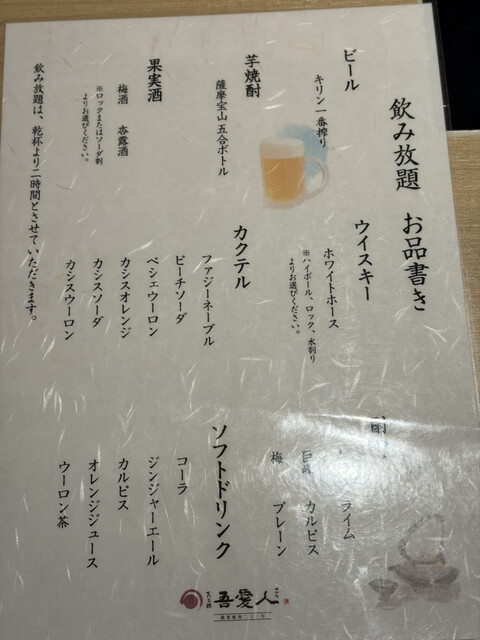 飲み放題 お品書き
ビール
キリン一番搾り
ウイスキー
ホワイトホース
※ハイボール、ロック、水割り
よりお選びください。
ライム
カルピス
梅
プレーン
芋焼酎
薩摩宝山 五合ボトル
カクテル
ファジーネーブル
ピーチソーダ
ペシェウーロン
カシスオレンジ
カシスソーダ
カシスウーロン
ソフトドリンク
コーラ
ジンジャーエール
カルピス
オレンジジュース
ウーロン茶
果実酒
梅酒 杏露酒
※ロックまたはソーダ割
よりお選びください。
飲み放題は、乾杯より二時間とさせていただきます。
吾愛人